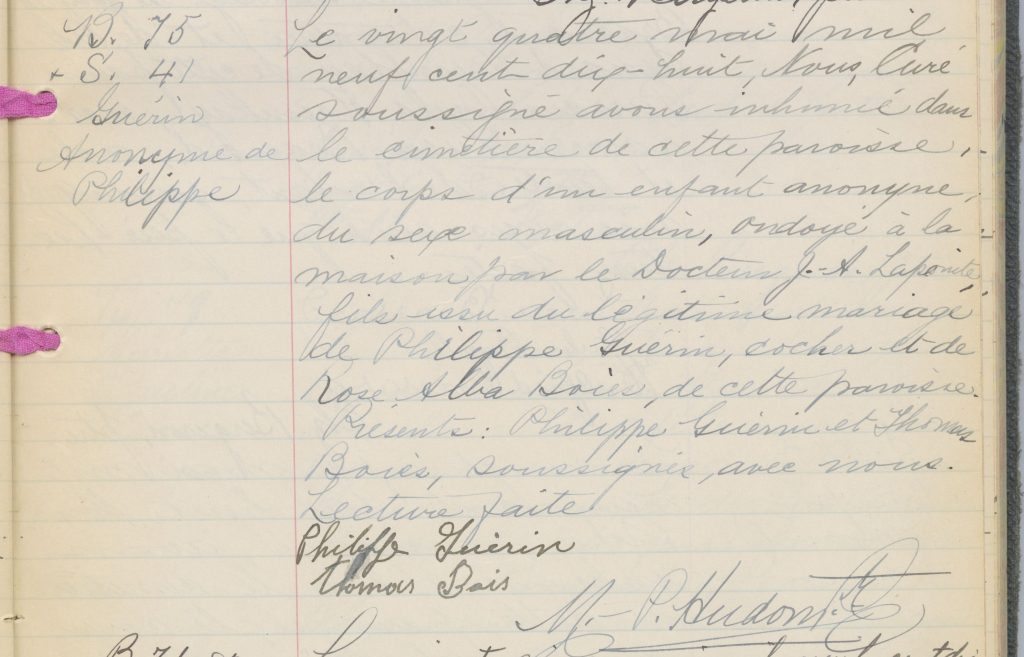 B. 75
+ S. 41
Guérin
Anonyme de
Philippe
Le vingt quatre mai mil
neuf cent dix-huit, Nous, Curé
soussigné avons inhumé dans
le cimetière de cette paroisse,
le corps d'un enfant anonyme,
du sexe masculin, ondoyé à la
maison par le Docteur J.-A. Lapointe,
fils issu du légitime mariage
de Philippe Guérin, cocher et de
Rose Alba Boies, de cette paroisse.
Présents: Philippe Guérin et Thomas
Boies, soussignés, avec nous.
Lecture faite
Philippe Guérin
Thomas Bois
M.-P. Hudon